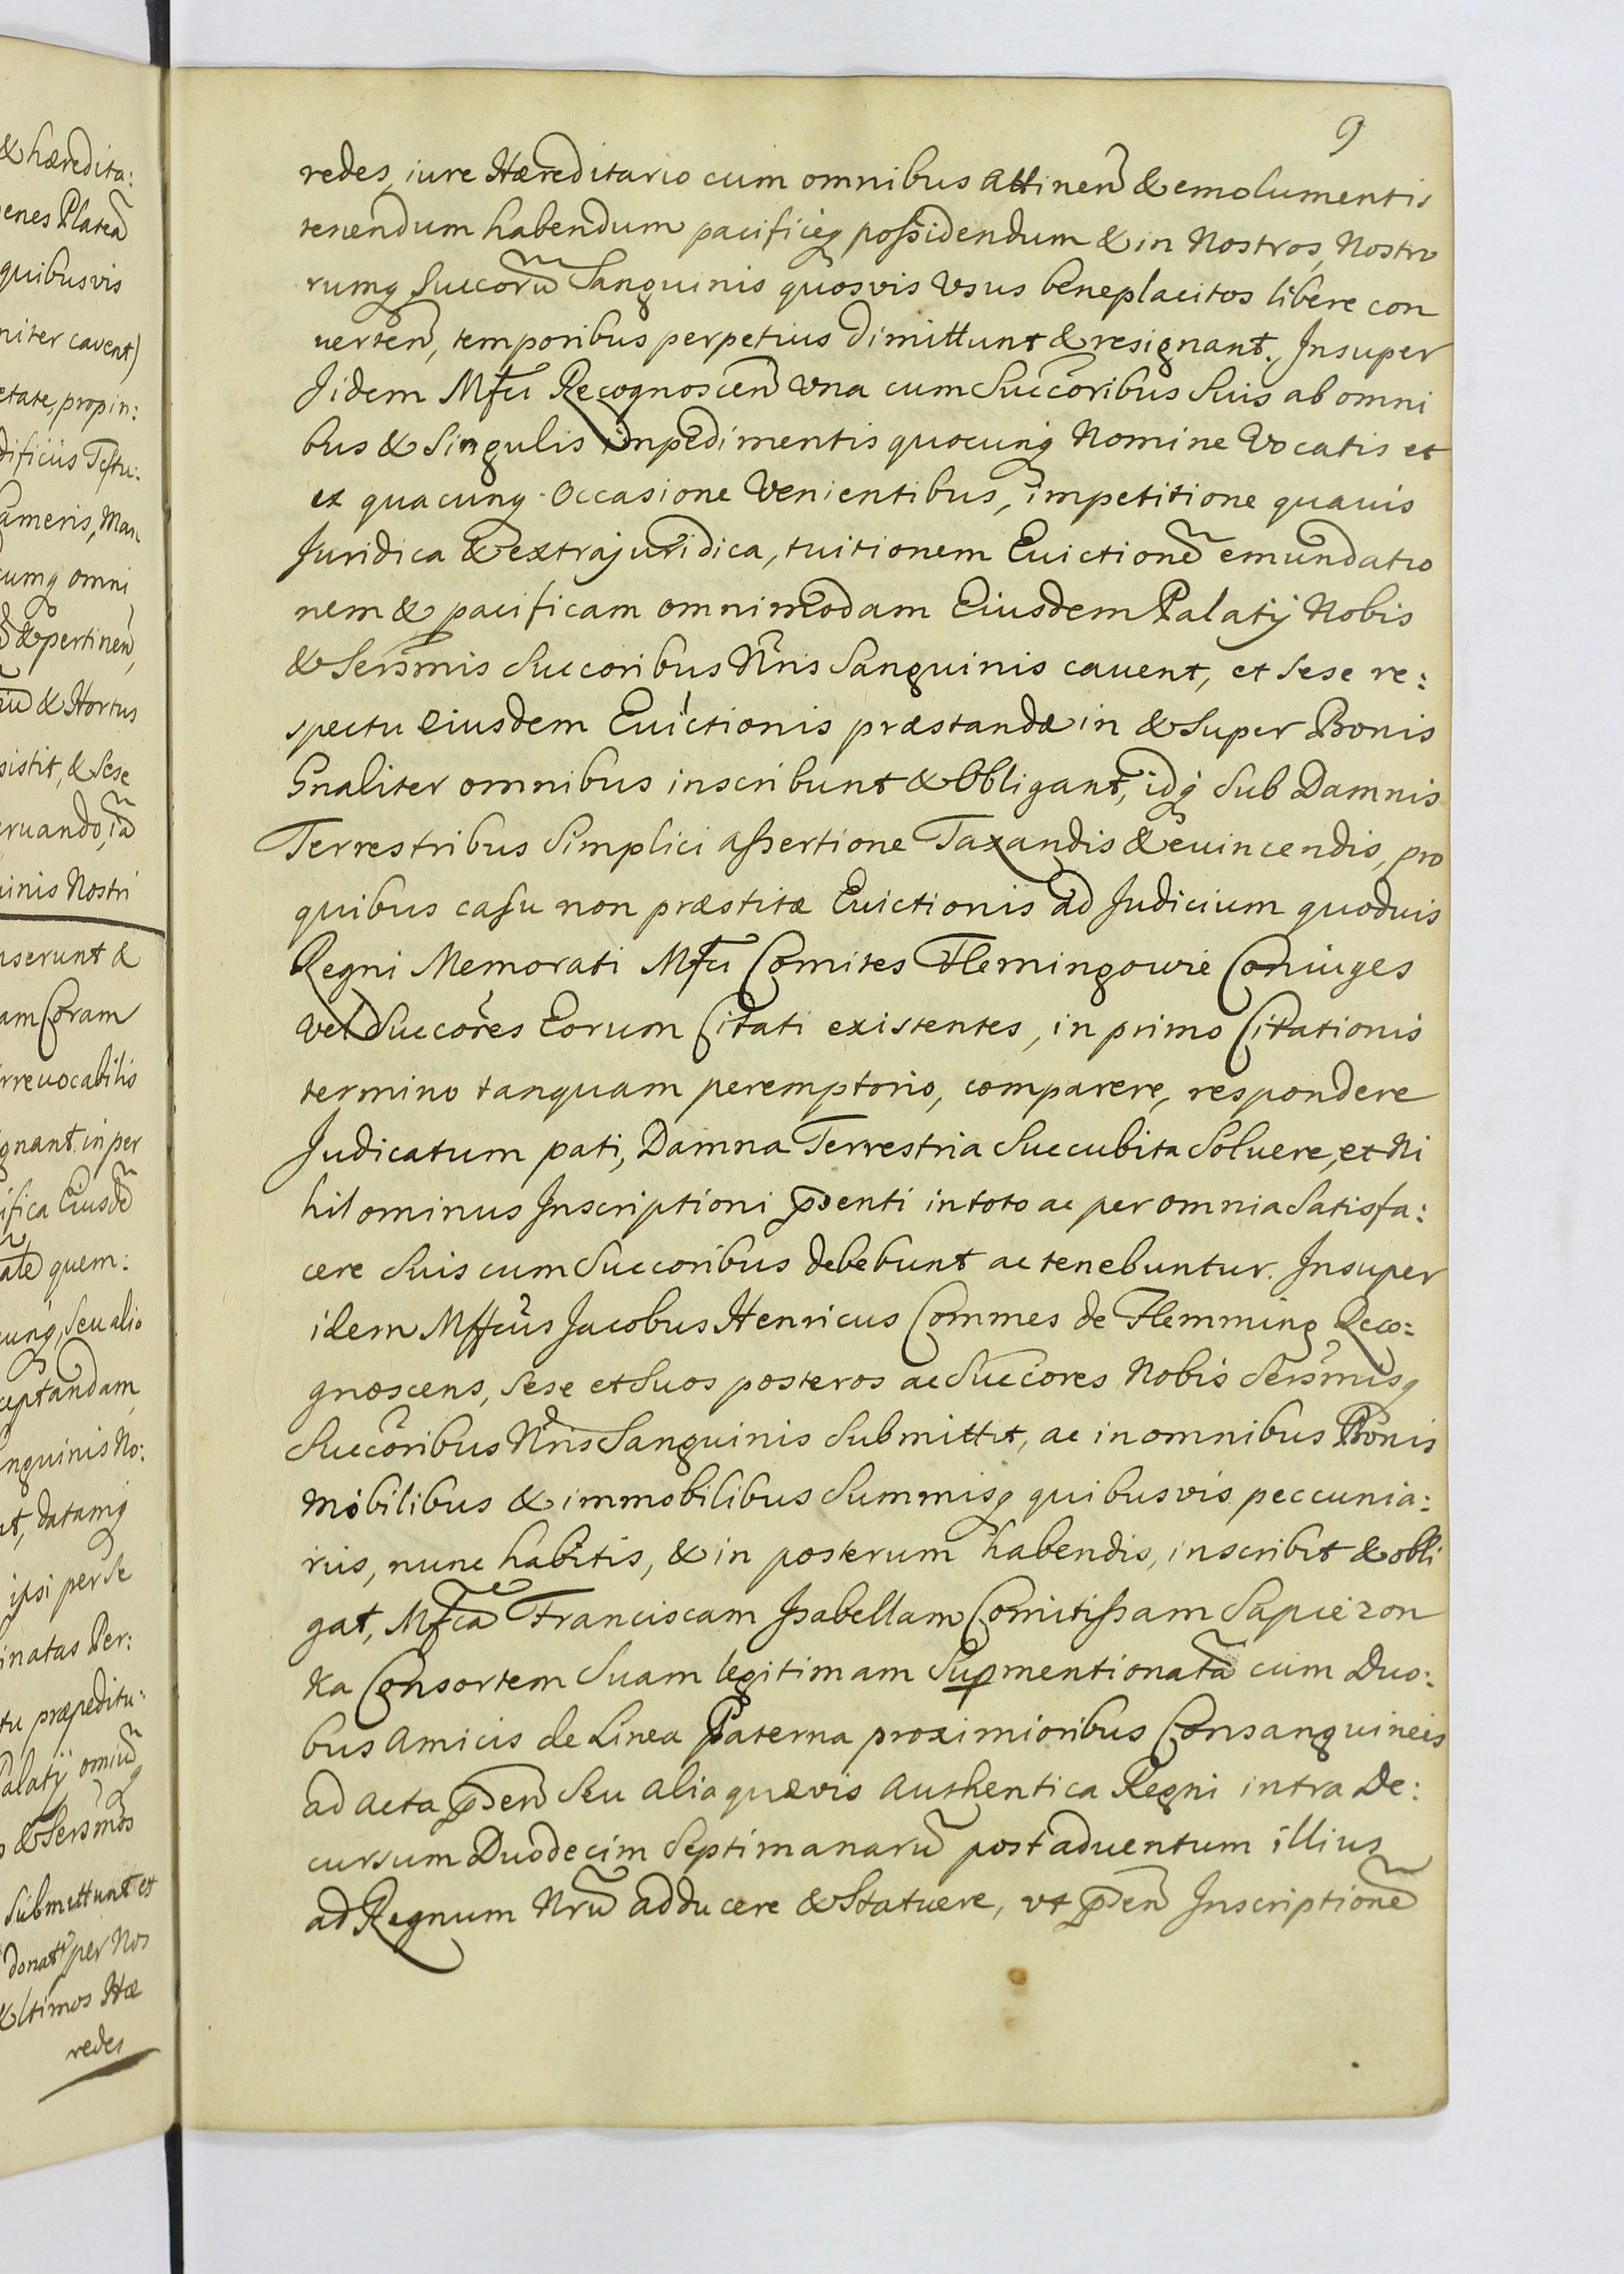 & hæredita:
enes Plateã
quibusvis
niter cavent)
etate, propin:
dificiis Testu:
ameris, Man
cumq omni
& pertineñ,
& Hortus
sistit, & sese
eruando, iã
uinis Nostri
nserunt &
am Coram
rreuocabilis
gnant. in per
ifica Eiusdẽ
quem:
cunq, seu alio
ceptandam
nguinis No:
nt, datamq
ipsi per se
inatas Per:
tu præpeditu:
Palatij omiũ
& Sersmos
submittunt et
donatt per Nos
&ltimos Hæ
redes
9
redes, iure Hæreditario cum omnibus attineñ & emolumentis
tenendum habendum pacificèq possidendum & in Nostros, Nostro
rumq Succorũ Sanguinis quosvis Vsus beneplacitos libere con
uerteñ, temporibus perpetius dimittunt & resignant. Insuper
Jidem Mfci Recognosceñ Vna cum Succoribus Suis ab omni
bus & Singulis impedimentis quocunq Nomine Vocatis et
et quacunq Occasione Venientibus, impetitione quauis
Juridica & extrajuridica, tuitionem Euictionẽ emundatio
nem & pacificam omnimodam Eiusdem Palatij Nobis
& Sersmis Succoribus Nris Sanguinis cauent, et sese re:
spectu eiusdem Euictionis præstandæ in & super Bonis
Gnaliter omnibus inscribunt & Obligant, idq sub Damnis
Terrestribus Simplici assertione Taxandis & euincendis, pro
quibus casu non præstitæ Euictionis ad Judicium quoduis
Regni Memorati Mfci Comites Flemingowie Coniuges
vel Succores Eorum Citati existentes, in primo Citationis
termino tanquam peremptorio, comparere, respondere
Judicatum pati, Damna Terrestria Succubita Soluere, et Ni
hilominus Inscriptioni pñsenti in toto ac per omnia Satisfa:
cere Suis cum Succoribus debebunt ac tenebuntur. Insuper
idem Mffcus Jacobus Henricus Commes de Flemming Reco:
gnoscens, sese et Suos posteros ac Succores Nobis Sersmisq
Succoribus Nris Sanguinis Submittit, ac in omnibus Bonis
Mobilibus & immobilibus Summisq quibusvis peccunia:
riis, nunc habitis, & in posterum habendis, inscribit & obli
gat, Mfcã Franciscam Isabellam Comitissam Sapiezon
ka Consortem Suam legitimam Supmentionatã cum Duo:
bus Amicis de Linea Paterna proximioribus Consanguineis
ad acta pñseñ seu alia quævis Authentica Regni intra De:
cursum Duodecim Septimanarũ post aduentum illius
ad Regnum Nrũ adducere & Statuere, vt pñseñ Inscriptionẽ